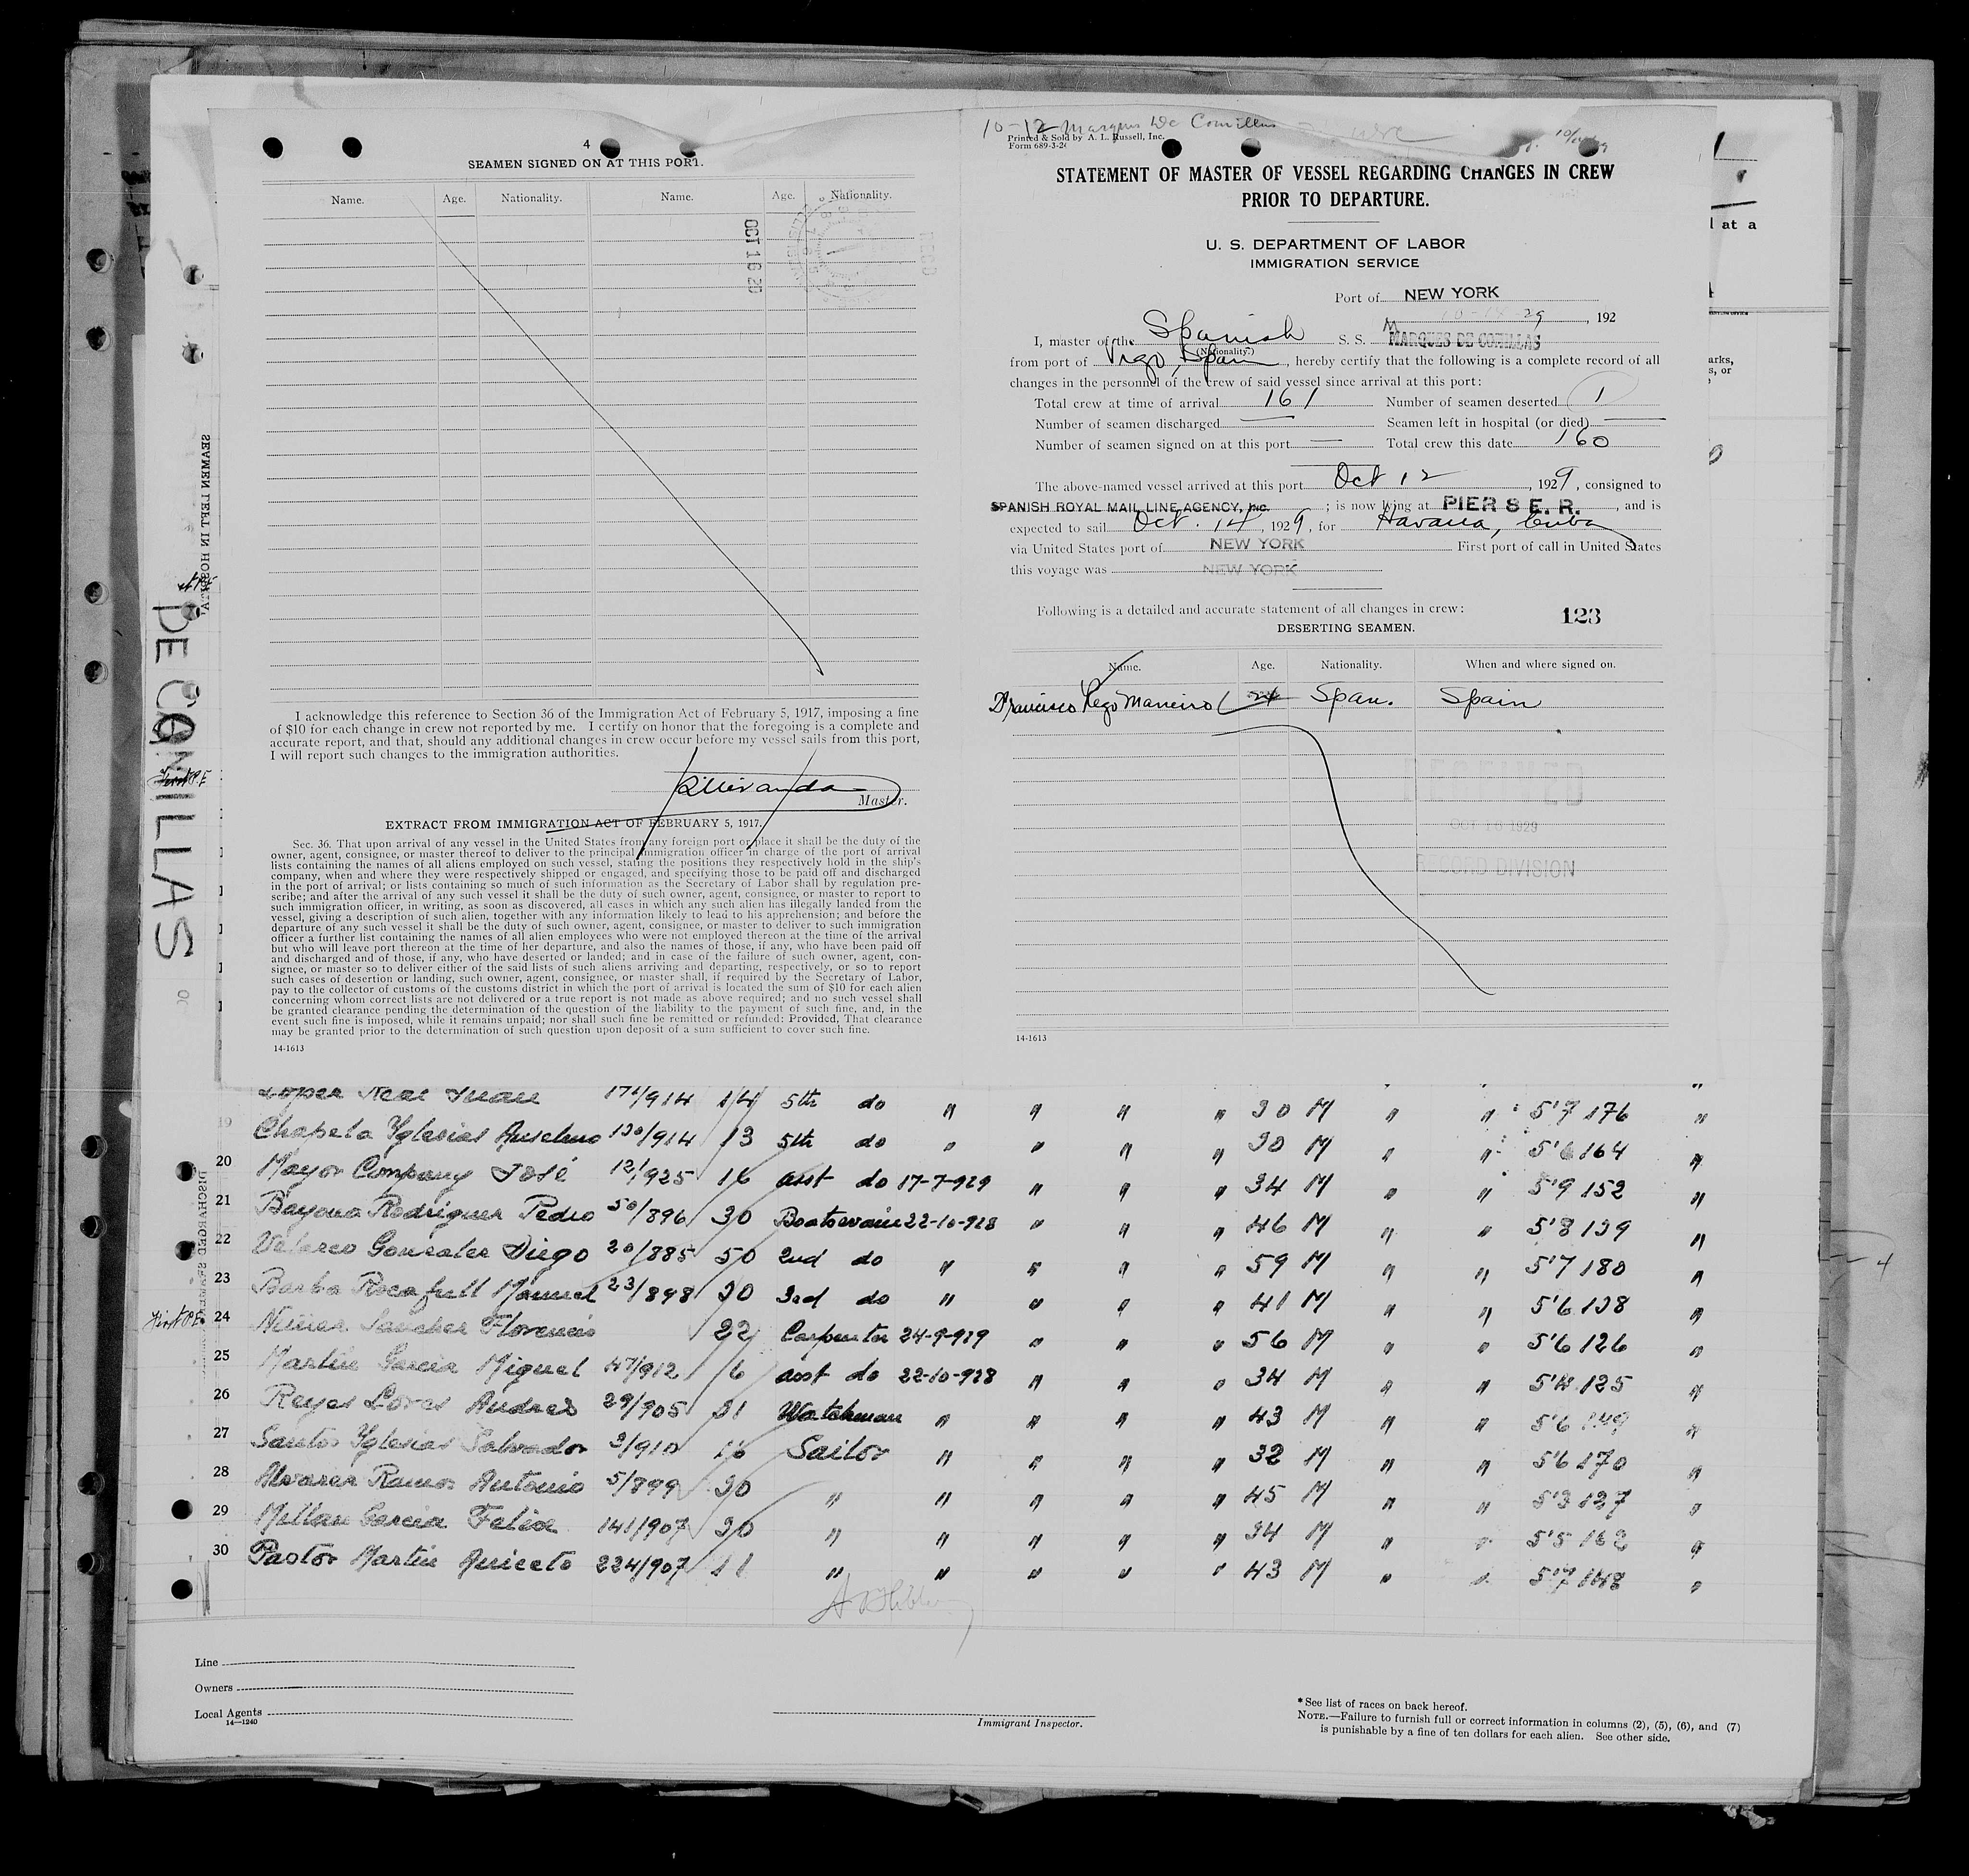 4
SEAMEN SIGNED ON AT THIS PORT.
Name. Age. Nationality. Name. Age. Nationality.
OCT 16 29
I acknowledge this reference to Section 36 of the Immigration Act of February 5, 1917, imposing a fine
of $10 for each change in crew not reported by me. I certify on honor that the foregoing is a complete and
accurate report, and that, should any additional changes in crew occur before my vessel sails from this port,
I will report such changes to the immigration authorities.
Master.
EXTRACT FROM IMMIGRATION ACT OF FEBRUARY 5, 1917.
Sec. 36. That upon arrival of any vessel in the United States from any foreign port or place it shall be the duty of the
owner, agent, consignee, or master thereof to deliver to the principal immigration officer in charge of the port of arrival
lists containing the names of all aliens employed on such vessel, stating the positions they respectively hold in the ship's
company, when and where they were respectively shipped or engaged, and specifying those to be paid off and discharged
in the port of arrival; or lists containing so much of such information as the Secretary of Labor shall by regulation pre-
scribe; and after the arrival of any such vessel it shall be the duty of such owner, agent, consignee, or master to report to
such immigration officer, in writing, as soon as discovered, all cases in which any such alien has illegally landed from the
vessel, giving a description of such alien, together with any information likely to lead to his apprehension; and before the
departure of any such vessel it shall be the duty of such owner, agent, consignee, or master to deliver to such immigration
officer a further list containing the names of all alien employees who were not employed thereon at the time of the arrival
but who will leave port thereon at the time of her departure, and also the names of those, if any, who have been paid off
and discharged and of those, if any, who have deserted or landed; and in case of the failure of such owner, agent, con-
signee, or master so to deliver either of the said lists of such aliens arriving and departing, respectively, or so to report
such cases of desertion or landing, such owner, agent, consignee, or master shall, if required by the Secretary of Labor,
pay to the collector of customs of the customs district in which the port of arrival is located the sum of $10 for each alien
concerning whom correct lists are not delivered or a true report is not made as above required; and no such vessel shall
be granted clearance pending the determination of the question of the liability to the payment of such fine, and, in the
event such fine is imposed, while it remains unpaid; nor shall such fine be remitted or refunded: Provided, That clearance
may be granted prior to the determination of such question upon deposit of a sum sufficient to cover such fine.
14-1613
10-12 Marques De Comillas
Printed & Sold by A. L. Russell, Inc.
Form 689-3-26
STATEMENT OF MASTER OF VESSEL REGARDING CHANGES IN CREW
PRIOR TO DEPARTURE.
U. S. DEPARTMENT OF LABOR
IMMIGRATION SERVICE
Port of NEW YORK
29, 192
I, master of the Spanish S. S. MARQUES DE COMILLAS
(Nationality.)
from port of Vigo, Spain, hereby certify that the following is a complete record of all
changes in the personnel of the crew of said vessel since arrival at this port:
Total crew at time of arrival 161 Number of seamen deserted 1
Number of seamen discharged — Seamen left in hospital (or died) —
Number of seamen signed on at this port — Total crew this date 160
The above-named vessel arrived at this port Oct 12, 1929, consigned to
SPANISH ROYAL MAIL LINE AGENCY, Inc.; is now lying at PIER 8 E. R., and is
expected to sail Oct. 14, 1929, for Havana, Cuba
via United States port of NEW YORK First port of call in United States
this voyage was NEW YORK
Following is a detailed and accurate statement of all changes in crew: 123
DESERTING SEAMEN.
Name. Age. Nationality. When and where signed on.
Francisco Rego Maneiro 24 Span. Spain
RECEIVED
OCT 16 1929
RECORD DIVISION
14-1613
at a
arks,
s, or
SEAMEN LEFT IN HOSPITA
DE COMILLAS
Lopez Real Juan 171/914 14 5th do " " " " 30 M " " 5'7 176 "
19 Chapela Yglesias Anselmo 130/914 13 5th do " " " " 30 M " " 5'6 164 "
20 Mayor Company José 121/925 16 asst do 17-7-929 " " " 34 M " " 5'9 152 "
21 Bayona Rodriguez Pedro 50/896 30 Boatswain 22-10-928 " " " 46 M " " 5'8 139 "
22 Velasco Gonzalez Diego 20/885 50 2nd do " " " " 59 M " " 5'7 180 "
23 Barba Rocafull Manuel 23/898 30 3rd do " " " " 41 M " " 5'6 138 "
24 Nuñez Sanchez Florencio 22 Carpenter 24-9-929 " " " 56 M " " 5'6 126 "
25 Martin Garcia Miguel 47/912 6 asst do 22-10-928 " " " 34 M " " 5'4 125 "
26 Reyes Lores Andres 29/905 31 Watchman " " " " 43 M " " 5'6 149 "
27 Santos Yglesias Salvador 3/910 16 Sailor " " " " 32 M " " 5'6 170 "
28 Alvarez Ramos Antonio 5/899 30 " " " " " 45 M " " 5'3 127 "
29 Millan Garcia Felix 141/907 20 " " " " " 34 M " " 5'5 162 "
30 Pastor Martin Aniceto 224/907 11 " " " " " 43 M " " 5'7 148 "
Line
Owners
Local Agents
14—1240
Immigrant Inspector.
* See list of races on back hereof.
NOTE.—Failure to furnish full or correct information in columns (2), (5), (6), and (7)
is punishable by a fine of ten dollars for each alien. See other side.